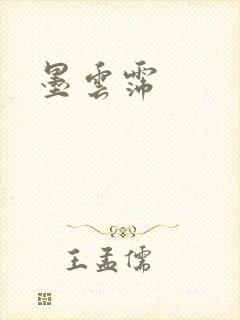 墨雲霈
王孟儒